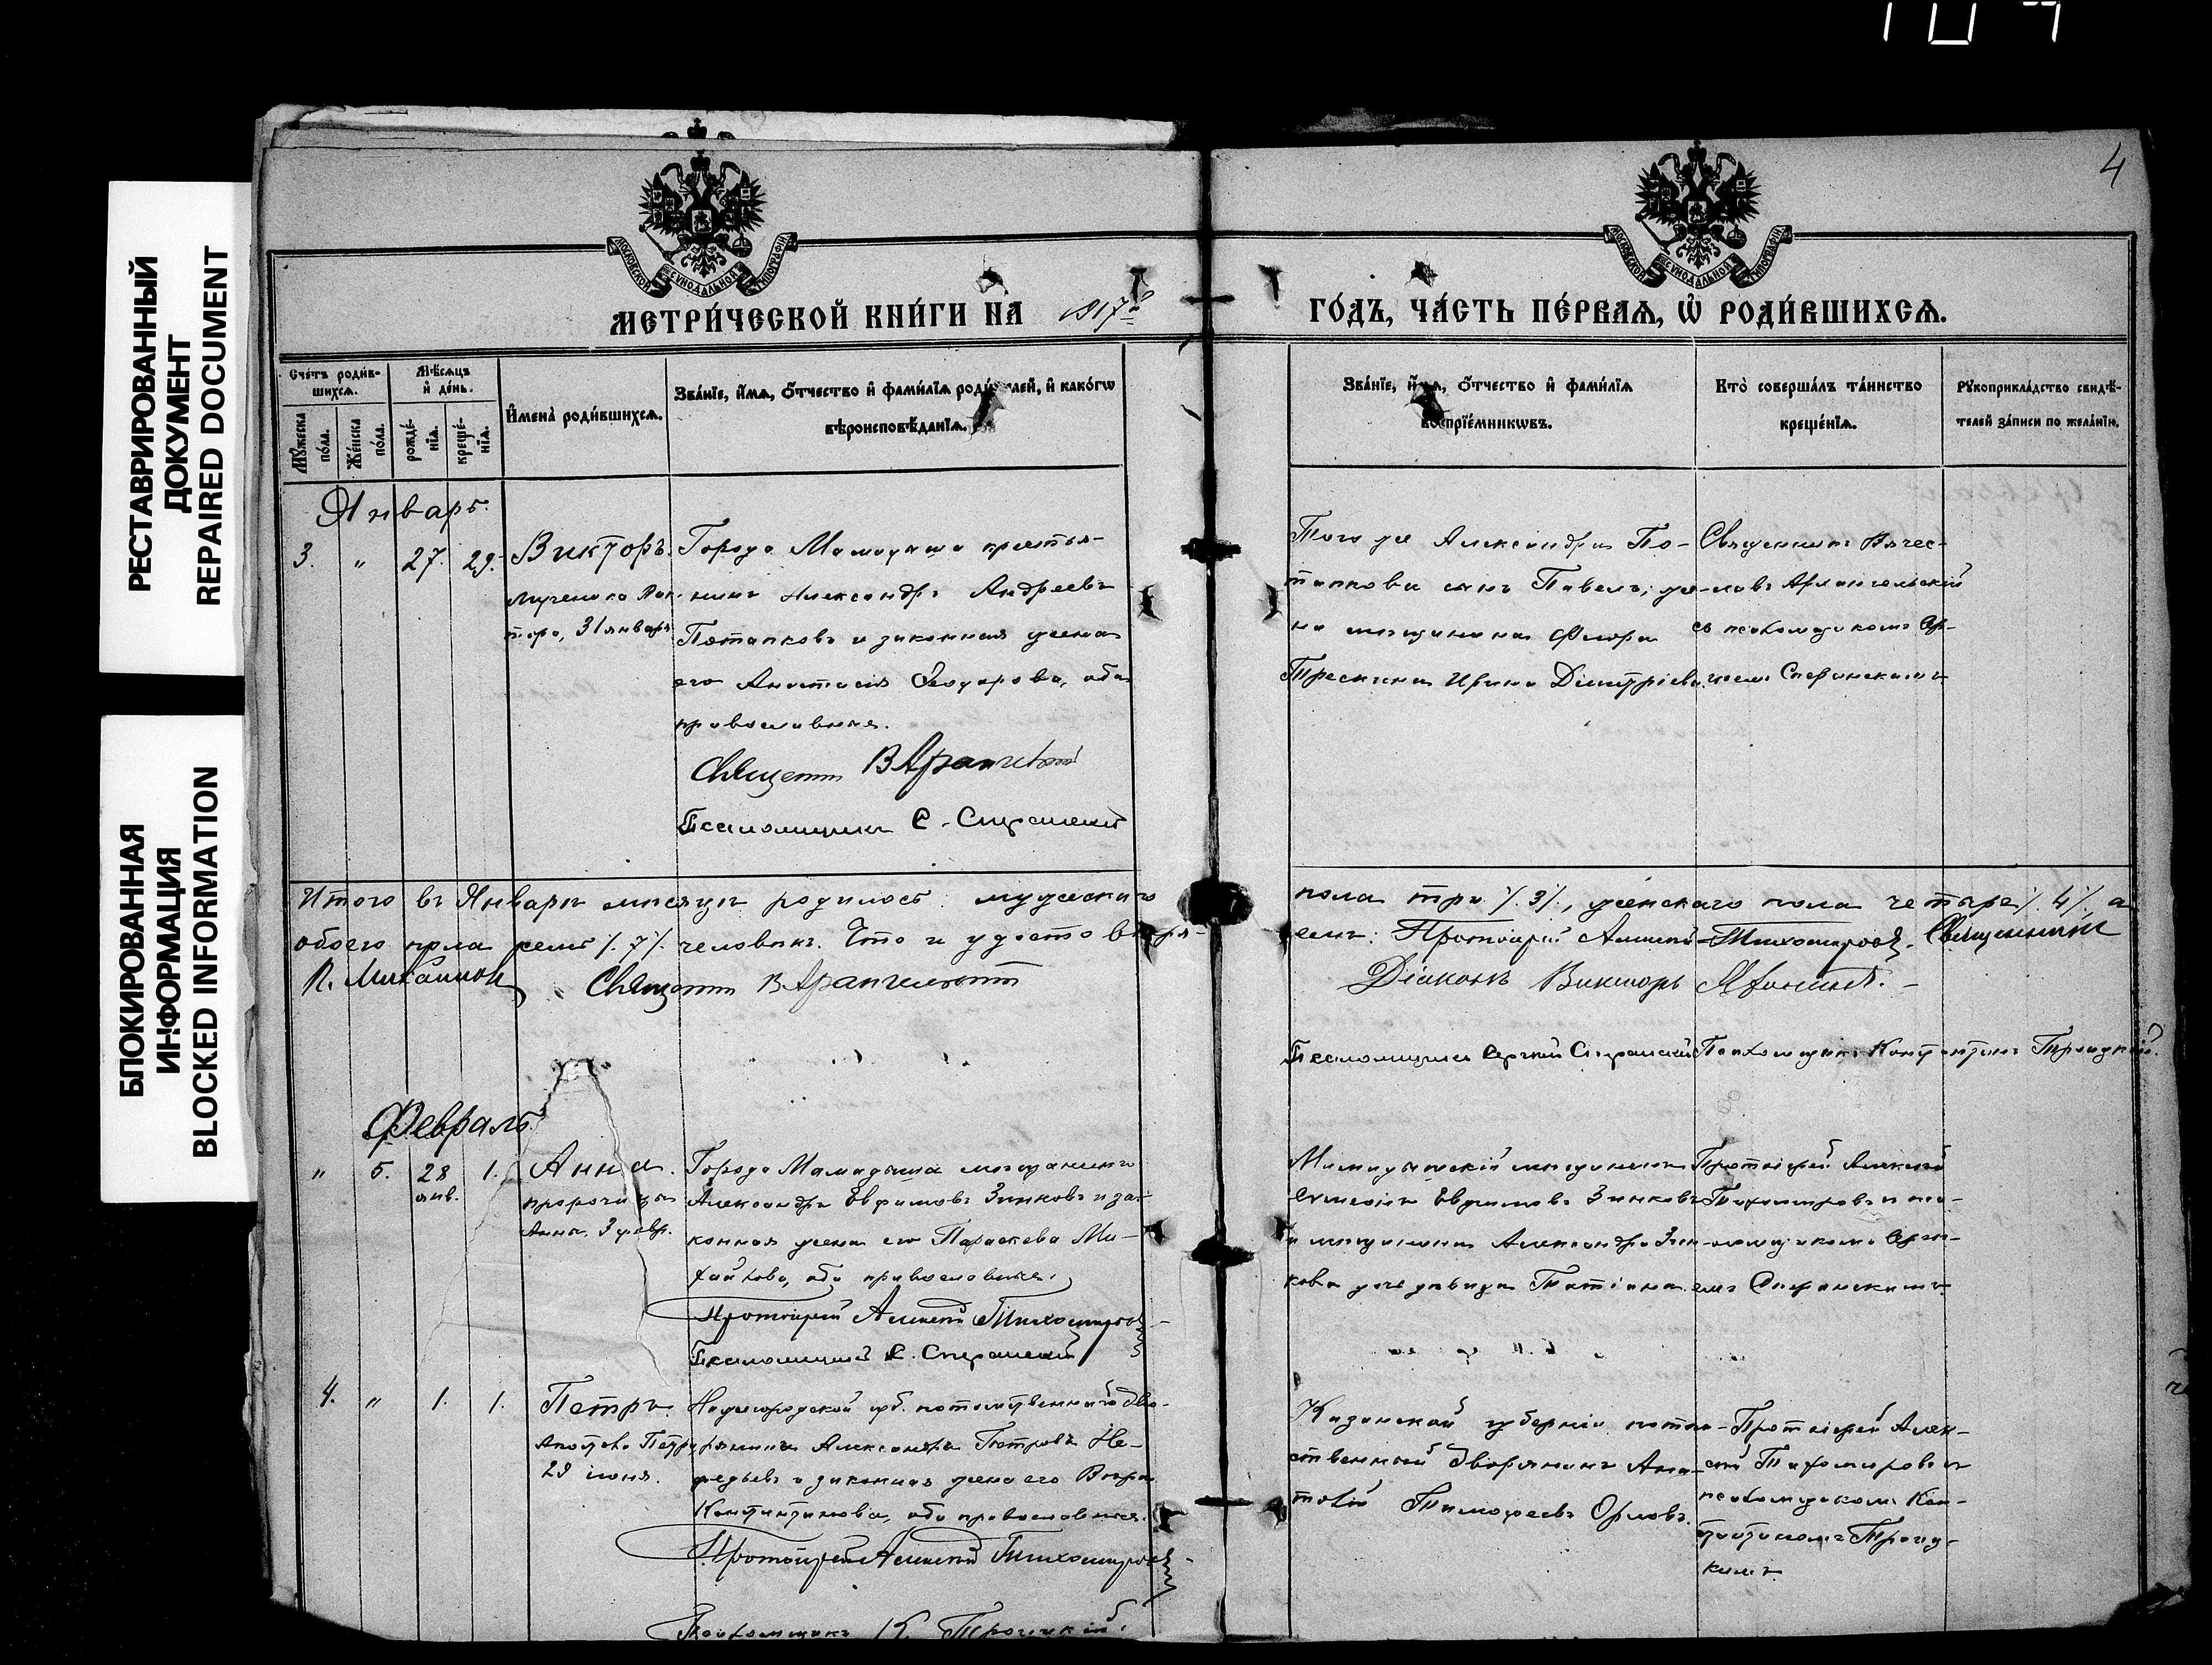 4
РЕСТАВРИРОВАННЫЙ
ДОКУМЕНТ
REPAIRED DOCUMENT
БЛОКИРОВАННАЯ
ИНФОРМАЦИЯ
BLOCKED INFORMATION
МОСКОВСКОЙ СѴНОДАЛЬНОЙ ТИПОГРАФІИ
МОСКОВСКОЙ СѴНОДАЛЬНОЙ ТИПОГРАФІИ
МЕТРИ́ЧЕСКОЙ КНИ́ГИ НА 1917й
ГО́ДЪ, ЧА́СТЬ ПЕ́РВАѦ, Ѡ҆ РОДИ́ВШИХСѦ.
Сче́тъ роди́в-
шихсѧ.
Мꙋ́жеска
по́ла.
Же́нска
по́ла.
Мѣ́сѧцъ
и҆ де́нь.
рожде́-
нїѧ.
креще́-
нїѧ.
И҆мена̀ роди́вшихсѧ.
Зва́нїе, и҆́мѧ, ѻ҆́тчество и҆ фами́лїѧ роди́телей, и҆ како́гѡ
вѣроисповѣ́данїѧ.
Зва́нїе, и҆́мѧ, ѻ҆́тчество и҆ фами́лїѧ
воспрїе́мникѡвъ.
Кто̀ соверша́лъ та́инство
креще́нїѧ.
Рꙋкоприкла́дство свидѣ́-
телей за́писи по жела́нїю.
Январь.
3. " 27. 29. Викторъ.
мученика Вик-
тора, 31 января
Города Мамадыша крестья-
нинъ Александръ Андреевъ
Потапковъ и законная жена
его Анастасія Ѳеодорова, оба
православные.
Священникъ В Архангельскій
Псаломщикъ С. Сперанскій
Того же Александра По-
тапкова сынъ Павелъ; же-
на мѣщанина Флора
Трескина Ирина Димитріева.
Священникъ Вячес-
лавъ Архангельскій
съ псаломщикомъ Сер-
гіемъ Сперанскимъ
Итого въ Январѣ мѣсяцѣ родилось: мужескаго
пола три /.3/., женскаго пола четыре /.4/. а
обоего пола семь /.7/. человѣкъ. Что и удостовѣря-
емъ: Протоіерей Алексій Тихомировъ. Священникъ
П. Михайловъ Священникъ В Архангельскій
Діаконъ Викторъ Афонинъ.
Псаломщикъ Сергій Сперанскій Псаломщикъ Константинъ Троицкій.
Февраль
" 5. 28 янв. 1. Анна.
пророчицы
Анны. 3 февр.
Города Мамадыша мѣщанинъ
Александръ Евфимовъ Зинковъ и за-
конная жена его Параскева Ми-
хайлова, оба православные.
Протоіерей Алексій Тихомировъ
Псаломщикъ С. Сперанскій
Мамадышскій мѣщанинъ
Симеонъ Евфимовъ Зинковъ
и мѣщанина Александра Зин-
кова дочь дѣвица Татіана.
Протоіерей Алексій
Тихомировъ и пса-
ломщикомъ Серги-
емъ Сперанскимъ.
4. " 1. 1. Петръ.
Апостола Петра
29 іюня.
Нижегородской губ. потомственный дво-
рянинъ Александръ Петровъ Не-
федьевъ и законная жена его Вѣра
Константинова, оба православные.
Протоіерей Алексій Тихомировъ
Псаломщикъ К. Троицкій.
Казанской губерніи потом-
ственный дворянинъ Ана-
толій Тимофеевъ Орловъ.
Протоіерей Алек-
сій Тихомировъ и
псаломщикомъ Кон-
стантиномъ Троиц-
кимъ